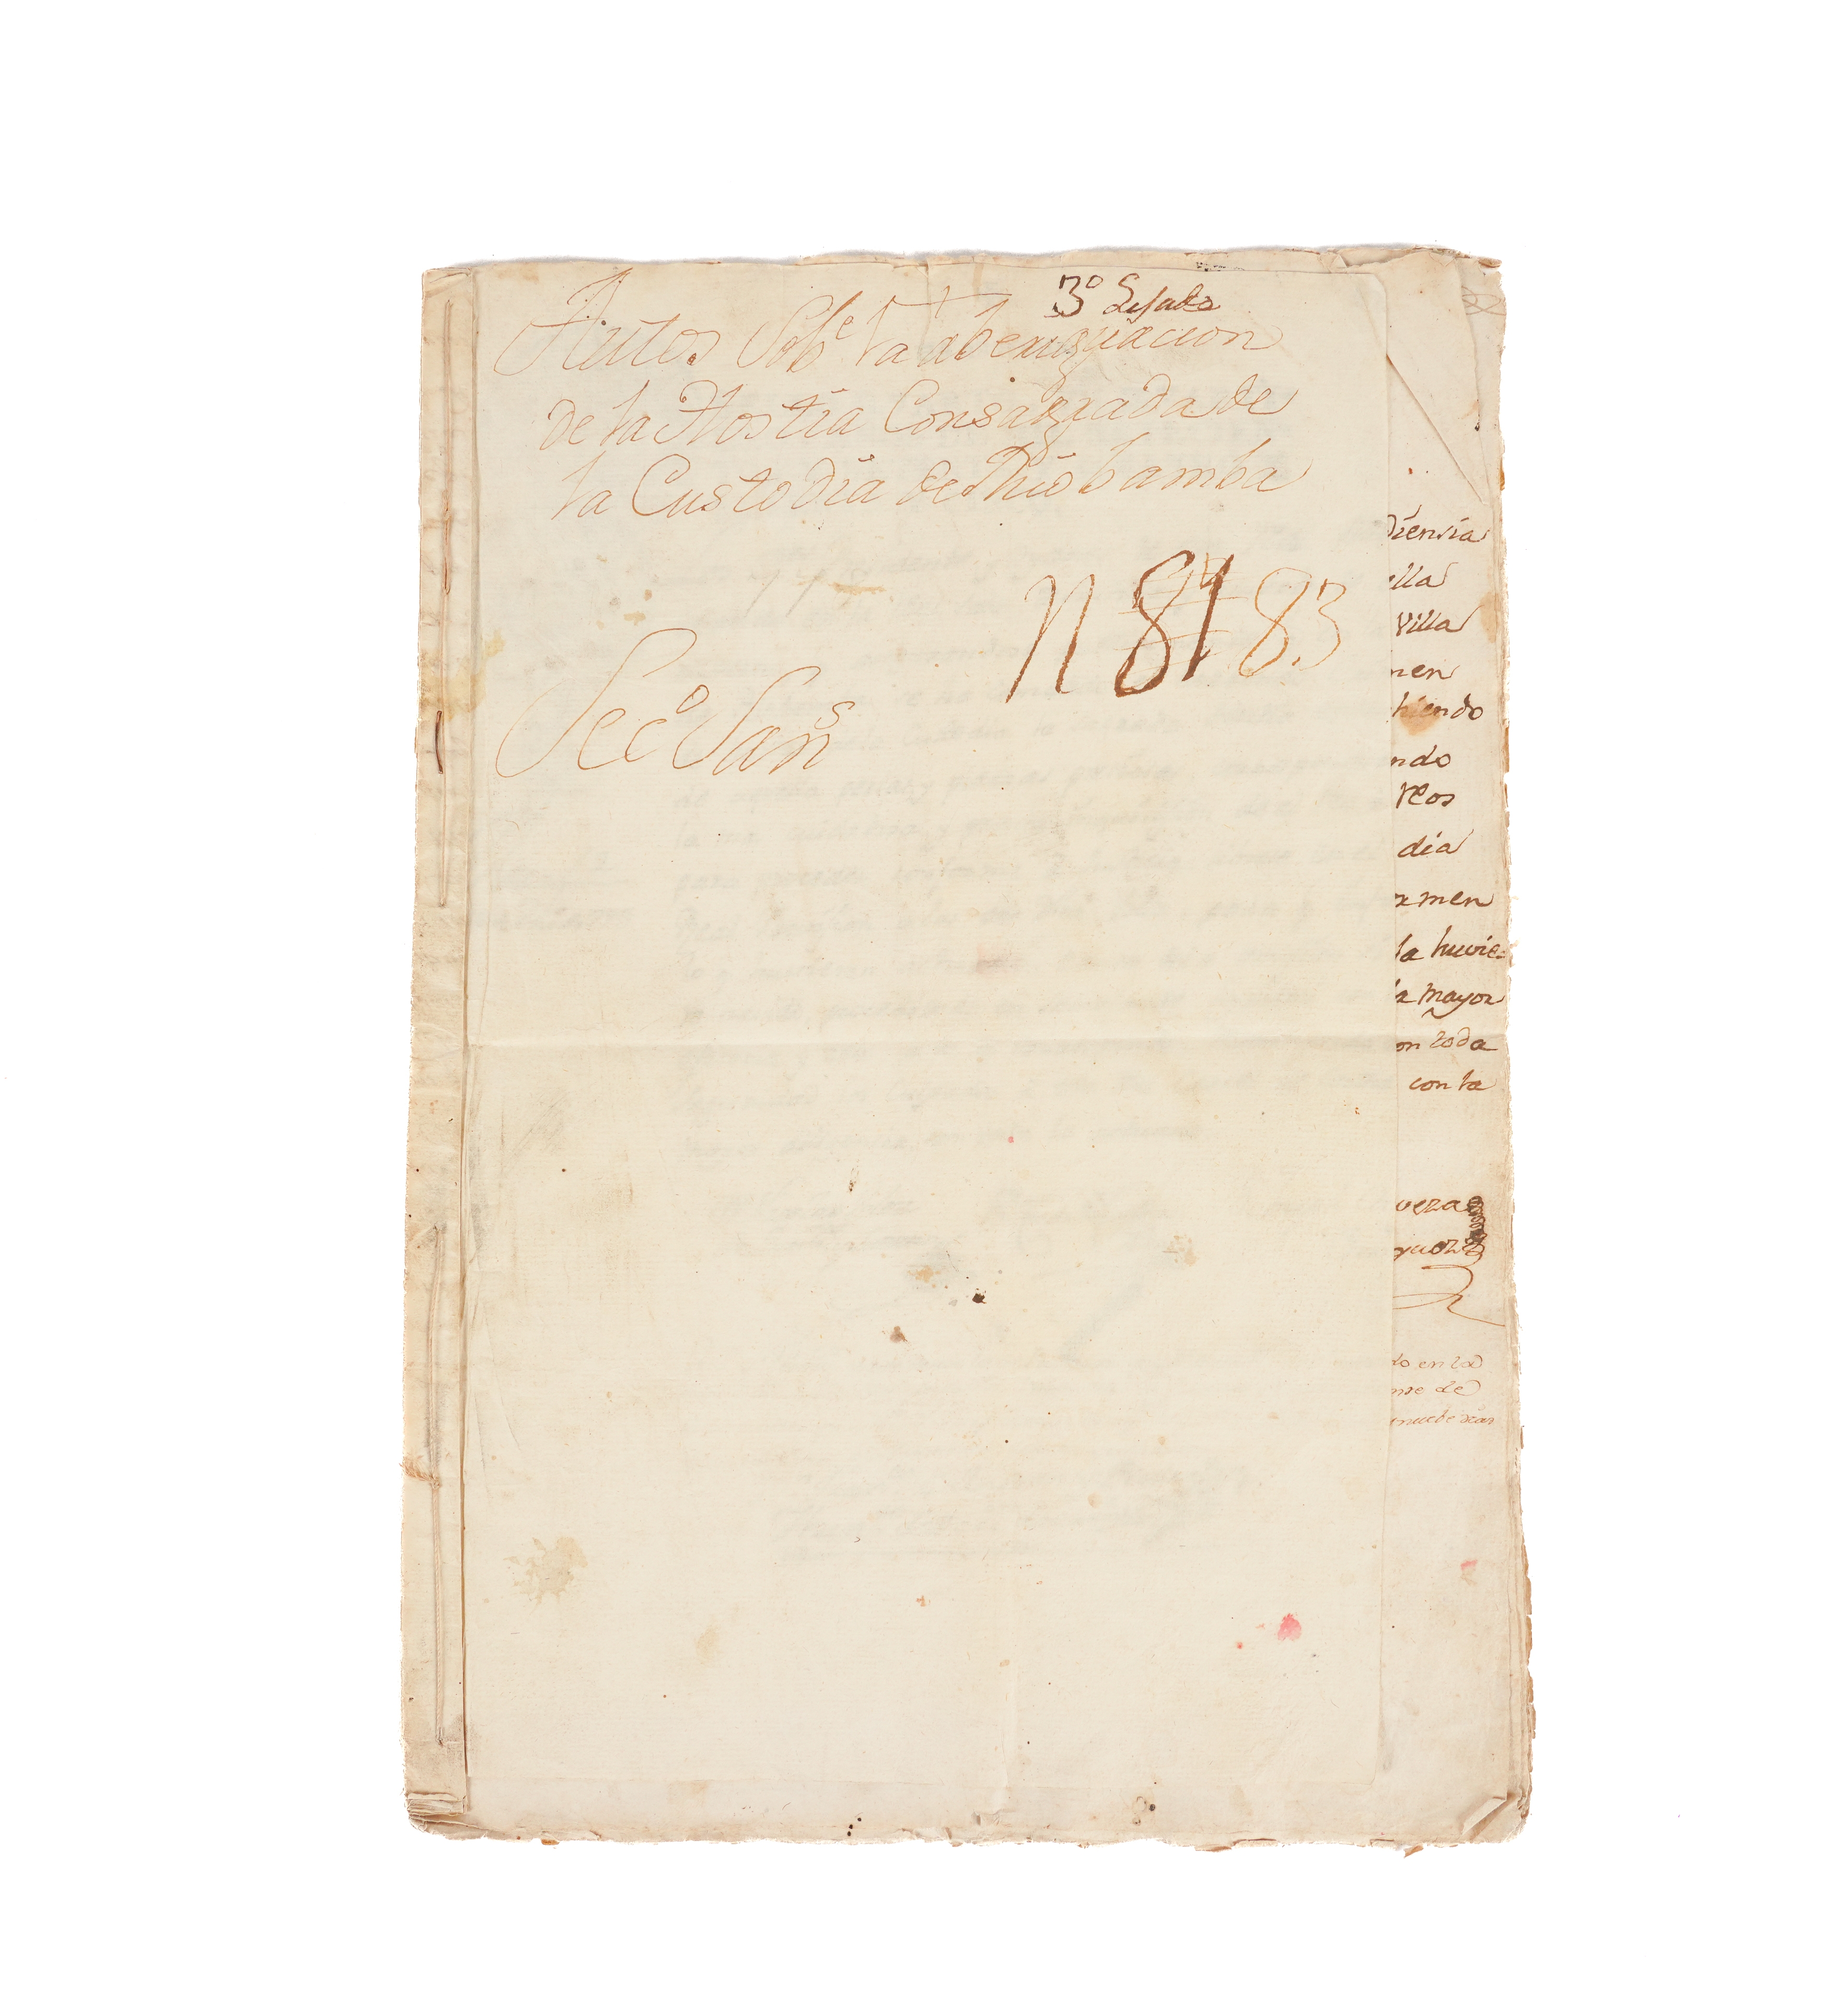 3º Legaxo
Autos Sobe. la aberiguacion
de la Hostia Consagrada de
la Custodia de Riobamba
N 81 83
Secº Sans
diencia
ella
Villa
men
hiendo
ndo
reos
dia
xamen
la huvie=
la mayor
on toda
con la
veza
do en la
nre de